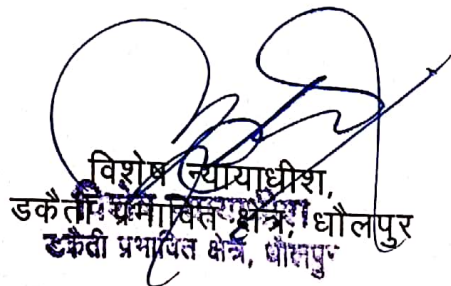 विशेष न्यायाधीश,
डकैती प्रभावित क्षेत्र, धौलपुर
विशेष न्यायाधीश
डकैती प्रभावित क्षेत्र, धौलपुर